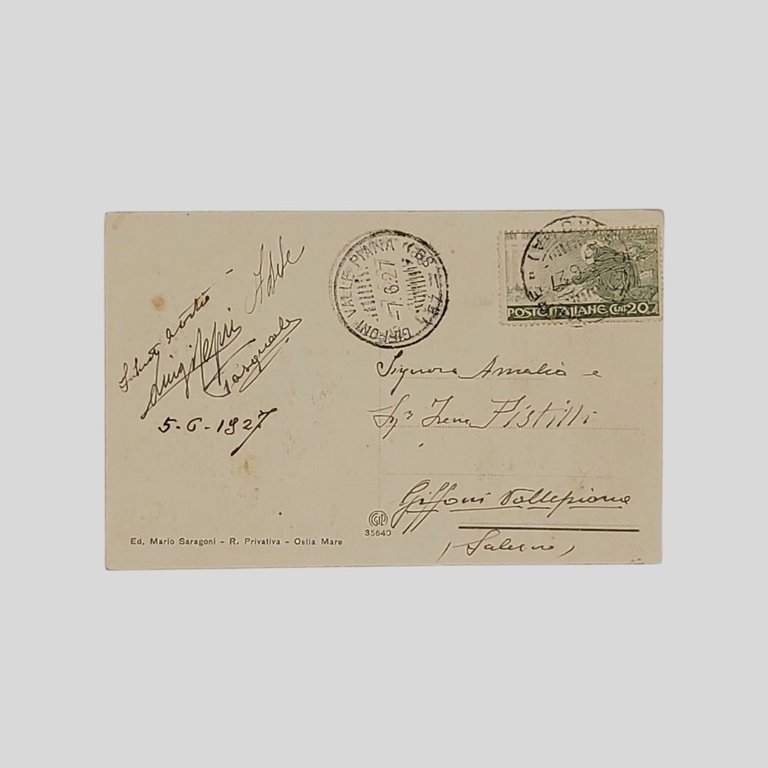 Adele
Luigi
Pasquale
5-6-1927
GIFFONI VALLE PIANA
7.6.27
POSTE ITALIANE CENT. 20
Signora Amalia e
Irene Pistilli
Giffoni Vallepiana
(Salerno)
GP
35640
Ed. Mario Saragoni - R. Privativa - Ostia Mare